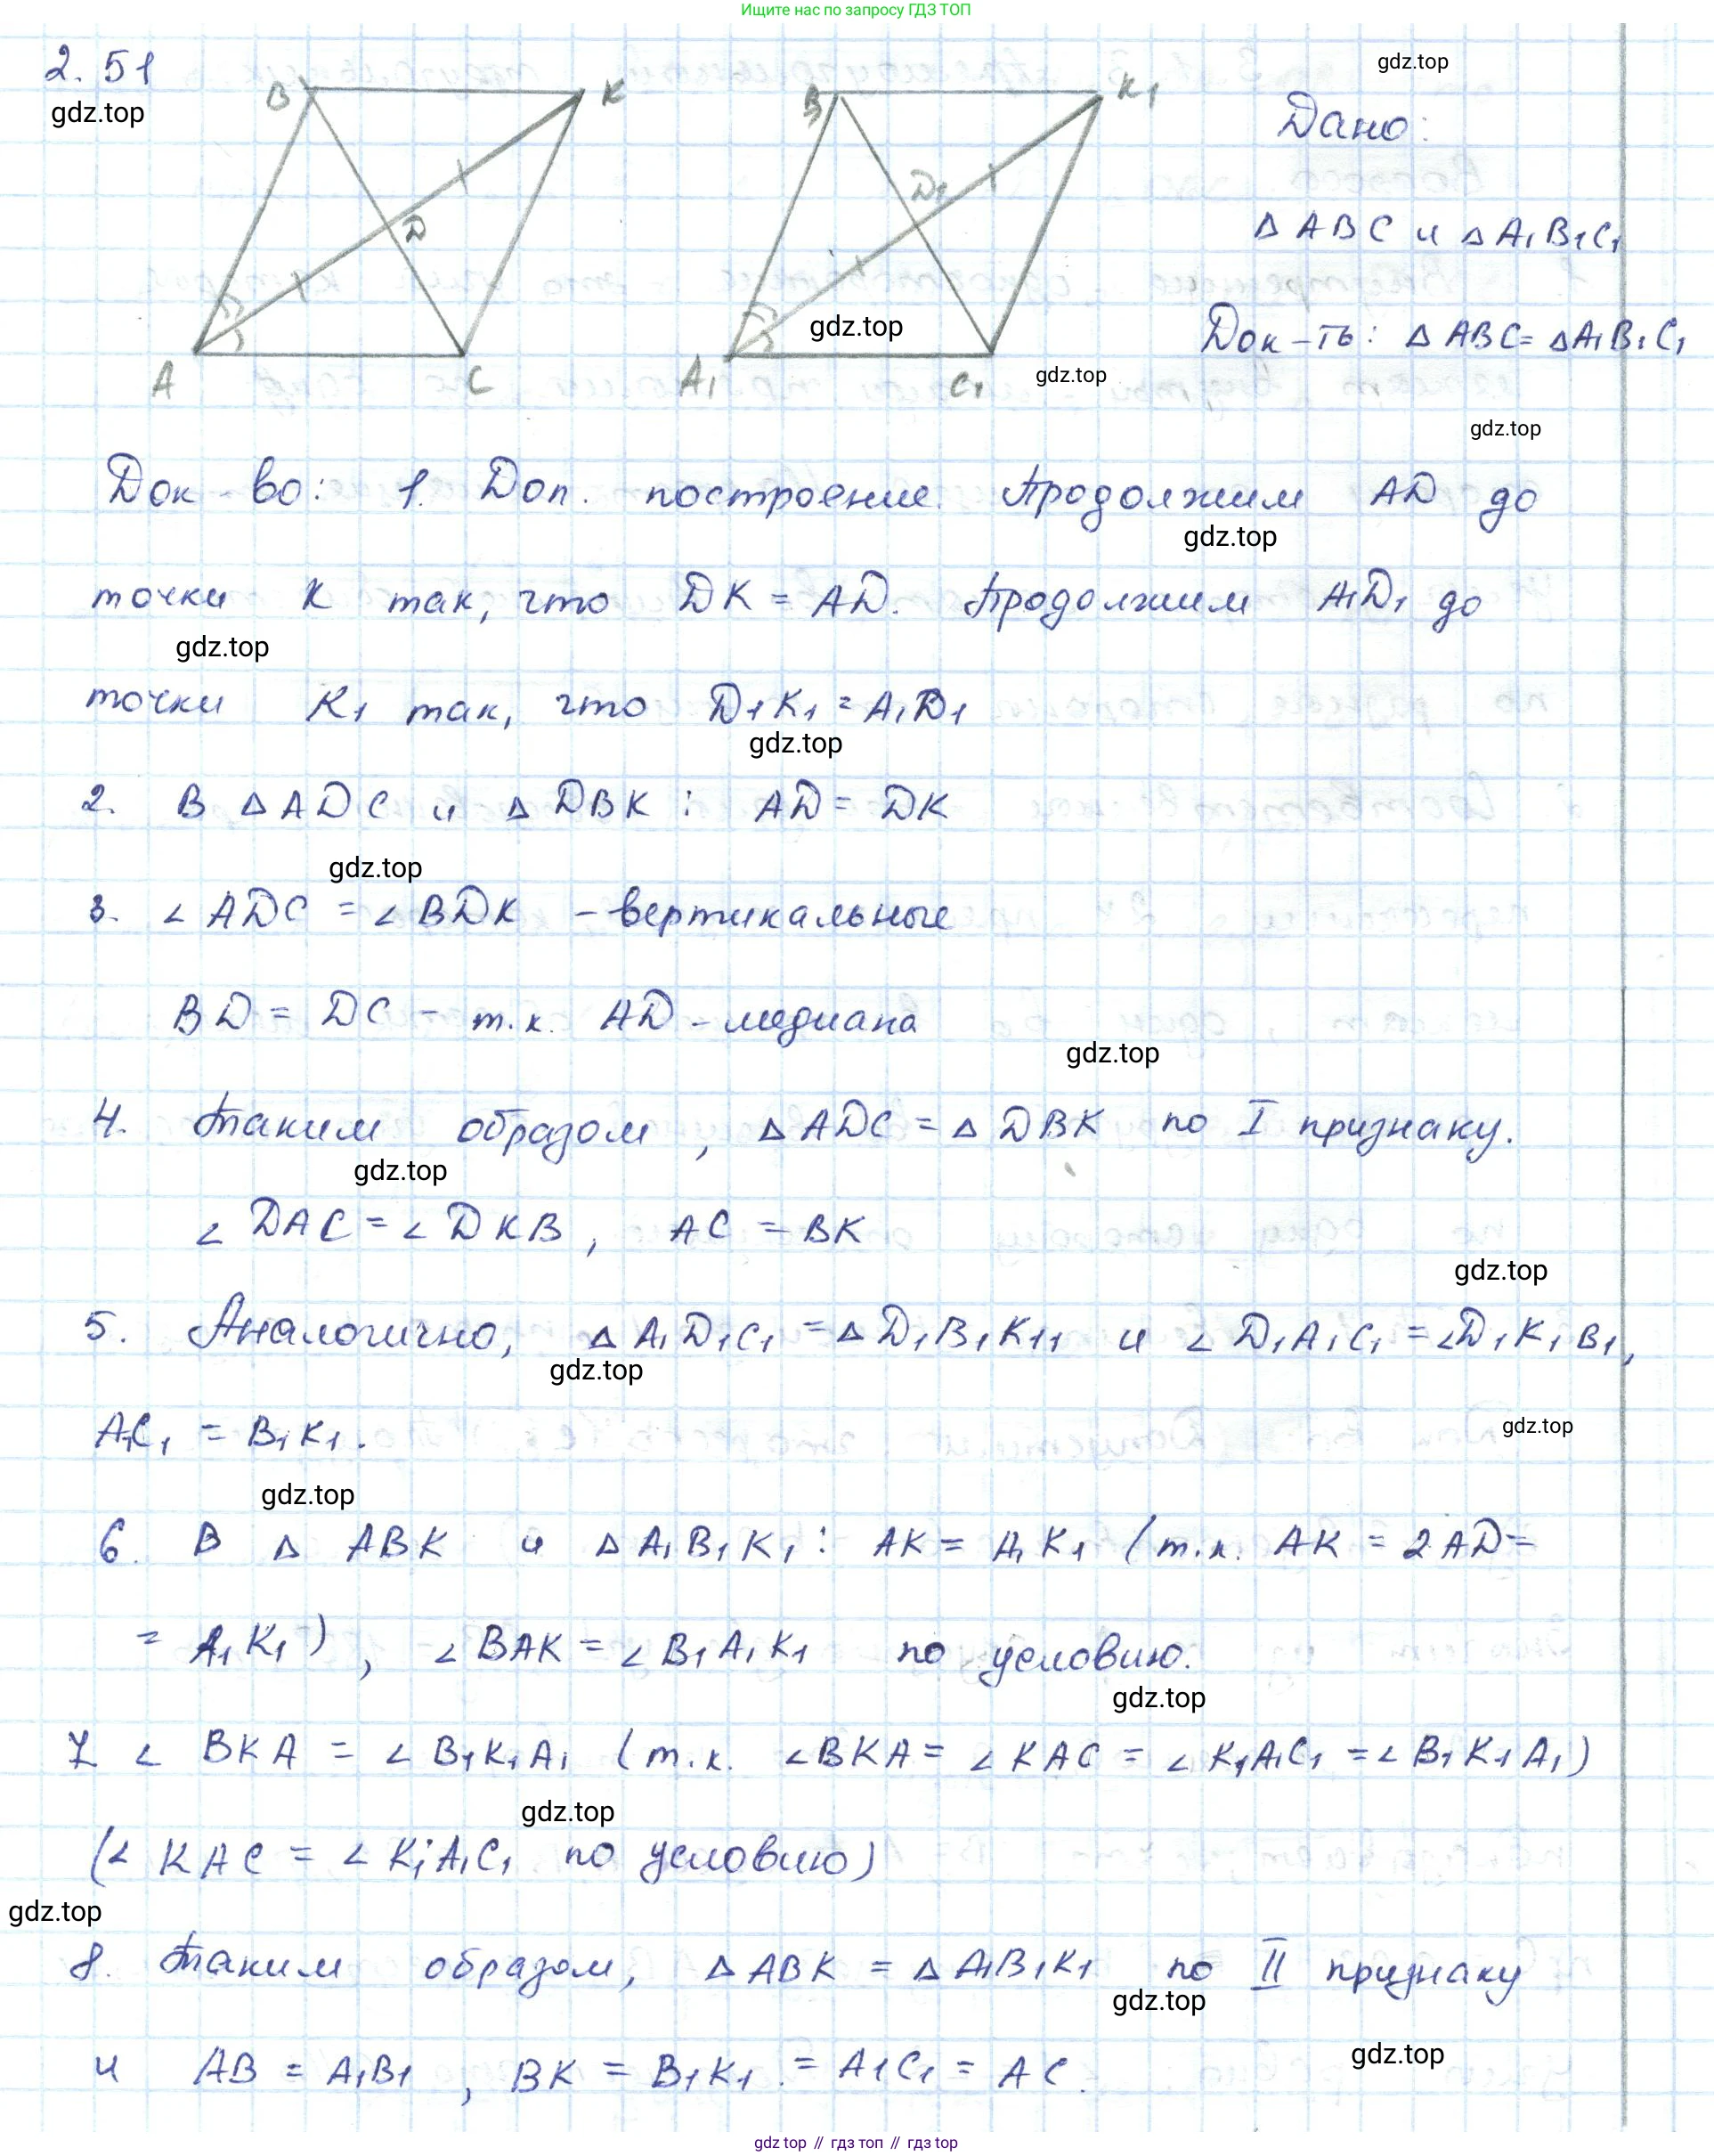 Ищите нас по запросу ГДЗ ТОП
2.51
gdz.top
B K
A C
D
B K1
D1
A1 C1
gdz.top
gdz.top
gdz.top
Дано:
Δ ABC и Δ A1B1C1
Док-ть: Δ ABC = ΔA1B1C1
gdz.top
Док-во: 1. Доп. построение. Продолжим AD до
gdz.top
точки K так, что DK = AD. Продолжим A1D1 до
gdz.top
точки K1 так, что D1K1 = A1D1
gdz.top
2. В Δ ADC и Δ DBK : AD = DK
gdz.top
3. ∠ ADC = ∠ BDK - вертикальные
BD = DC - т.к. AD - медиана
gdz.top
4. Таким образом, Δ ADC = Δ DBK по I признаку.
gdz.top
∠ DAC = ∠ DKB, AC = BK
gdz.top
5. Аналогично, Δ A1D1C1 = Δ D1B1K11 и ∠ D1A1C1 = ∠D1K1B1,
gdz.top
A1C1 = B1K1.
gdz.top
gdz.top
6. В Δ ABK и Δ A1B1K1 : AK = A1K1 (т.к. AK = 2AD =
= A1K1), ∠ BAK = ∠ B1A1K1 по условию.
gdz.top
7 ∠ BKA = ∠ B1K1A1 (т.к. ∠BKA = ∠ KAC = ∠ K1A1C1 = ∠ B1K1A1)
gdz.top
(∠ KAC = ∠ K1A1C1 по условию)
gdz.top
8. Таким образом, Δ ABK = Δ A1B1K1 по II признаку
gdz.top
и AB = A1B1, BK = B1K1 = A1C1 = AC.
gdz.top
gdz top // гдз топ // гдз top